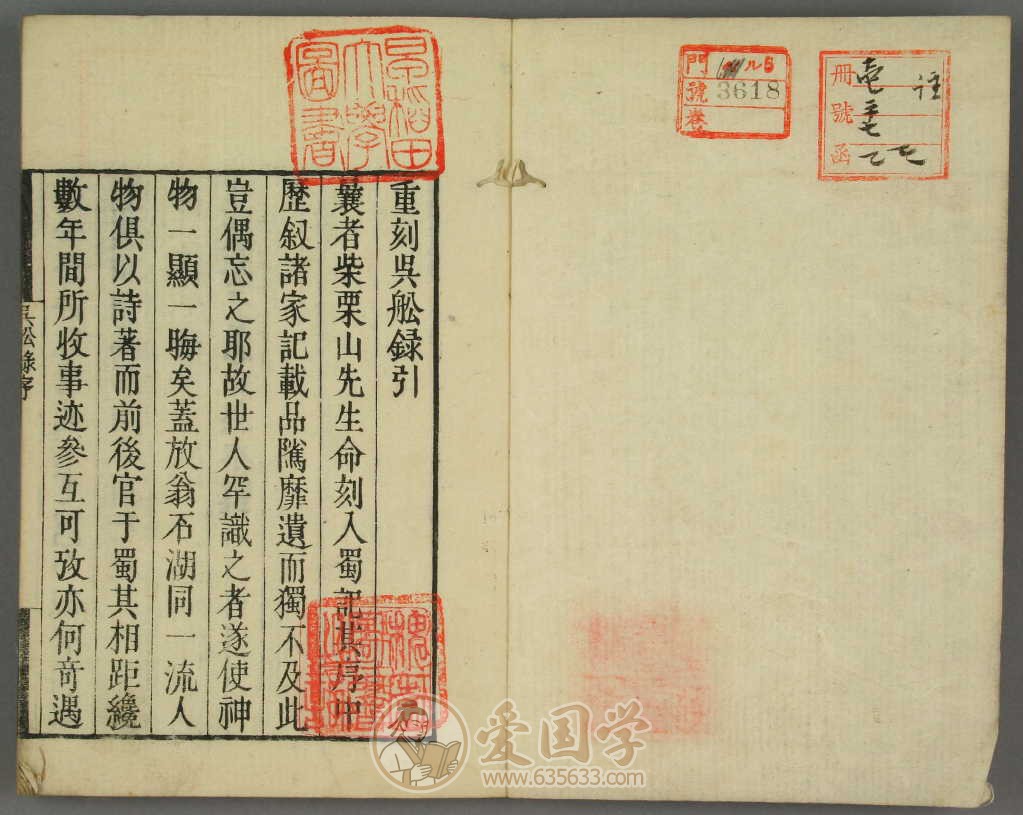 重刻吳舩録引
曩者柴栗山先生命刻入蜀記其序中
歴叙諸家記載品隲靡遺而獨不及此
豈偶忘之耶故世人罕識之者遂使神
物一顯一晦矣蓋放翁石湖同一流人
物俱以詩著而前後官于蜀其相距纔
數年間所收事迹參互可攷亦何竒遇
吳舩錄序
早稻田
大學
圖書
門 ル5
號 3618
卷
冊
號
函
爱国学
www.635633.com